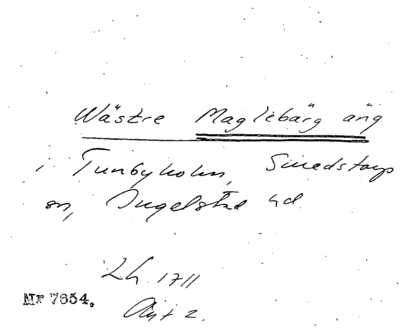 Wästre Maglebärg äng
i Tunbyholm, Smedstorps
sn, Ingelstad hd
Lh 1711
Akt 2.
Nr 7654.